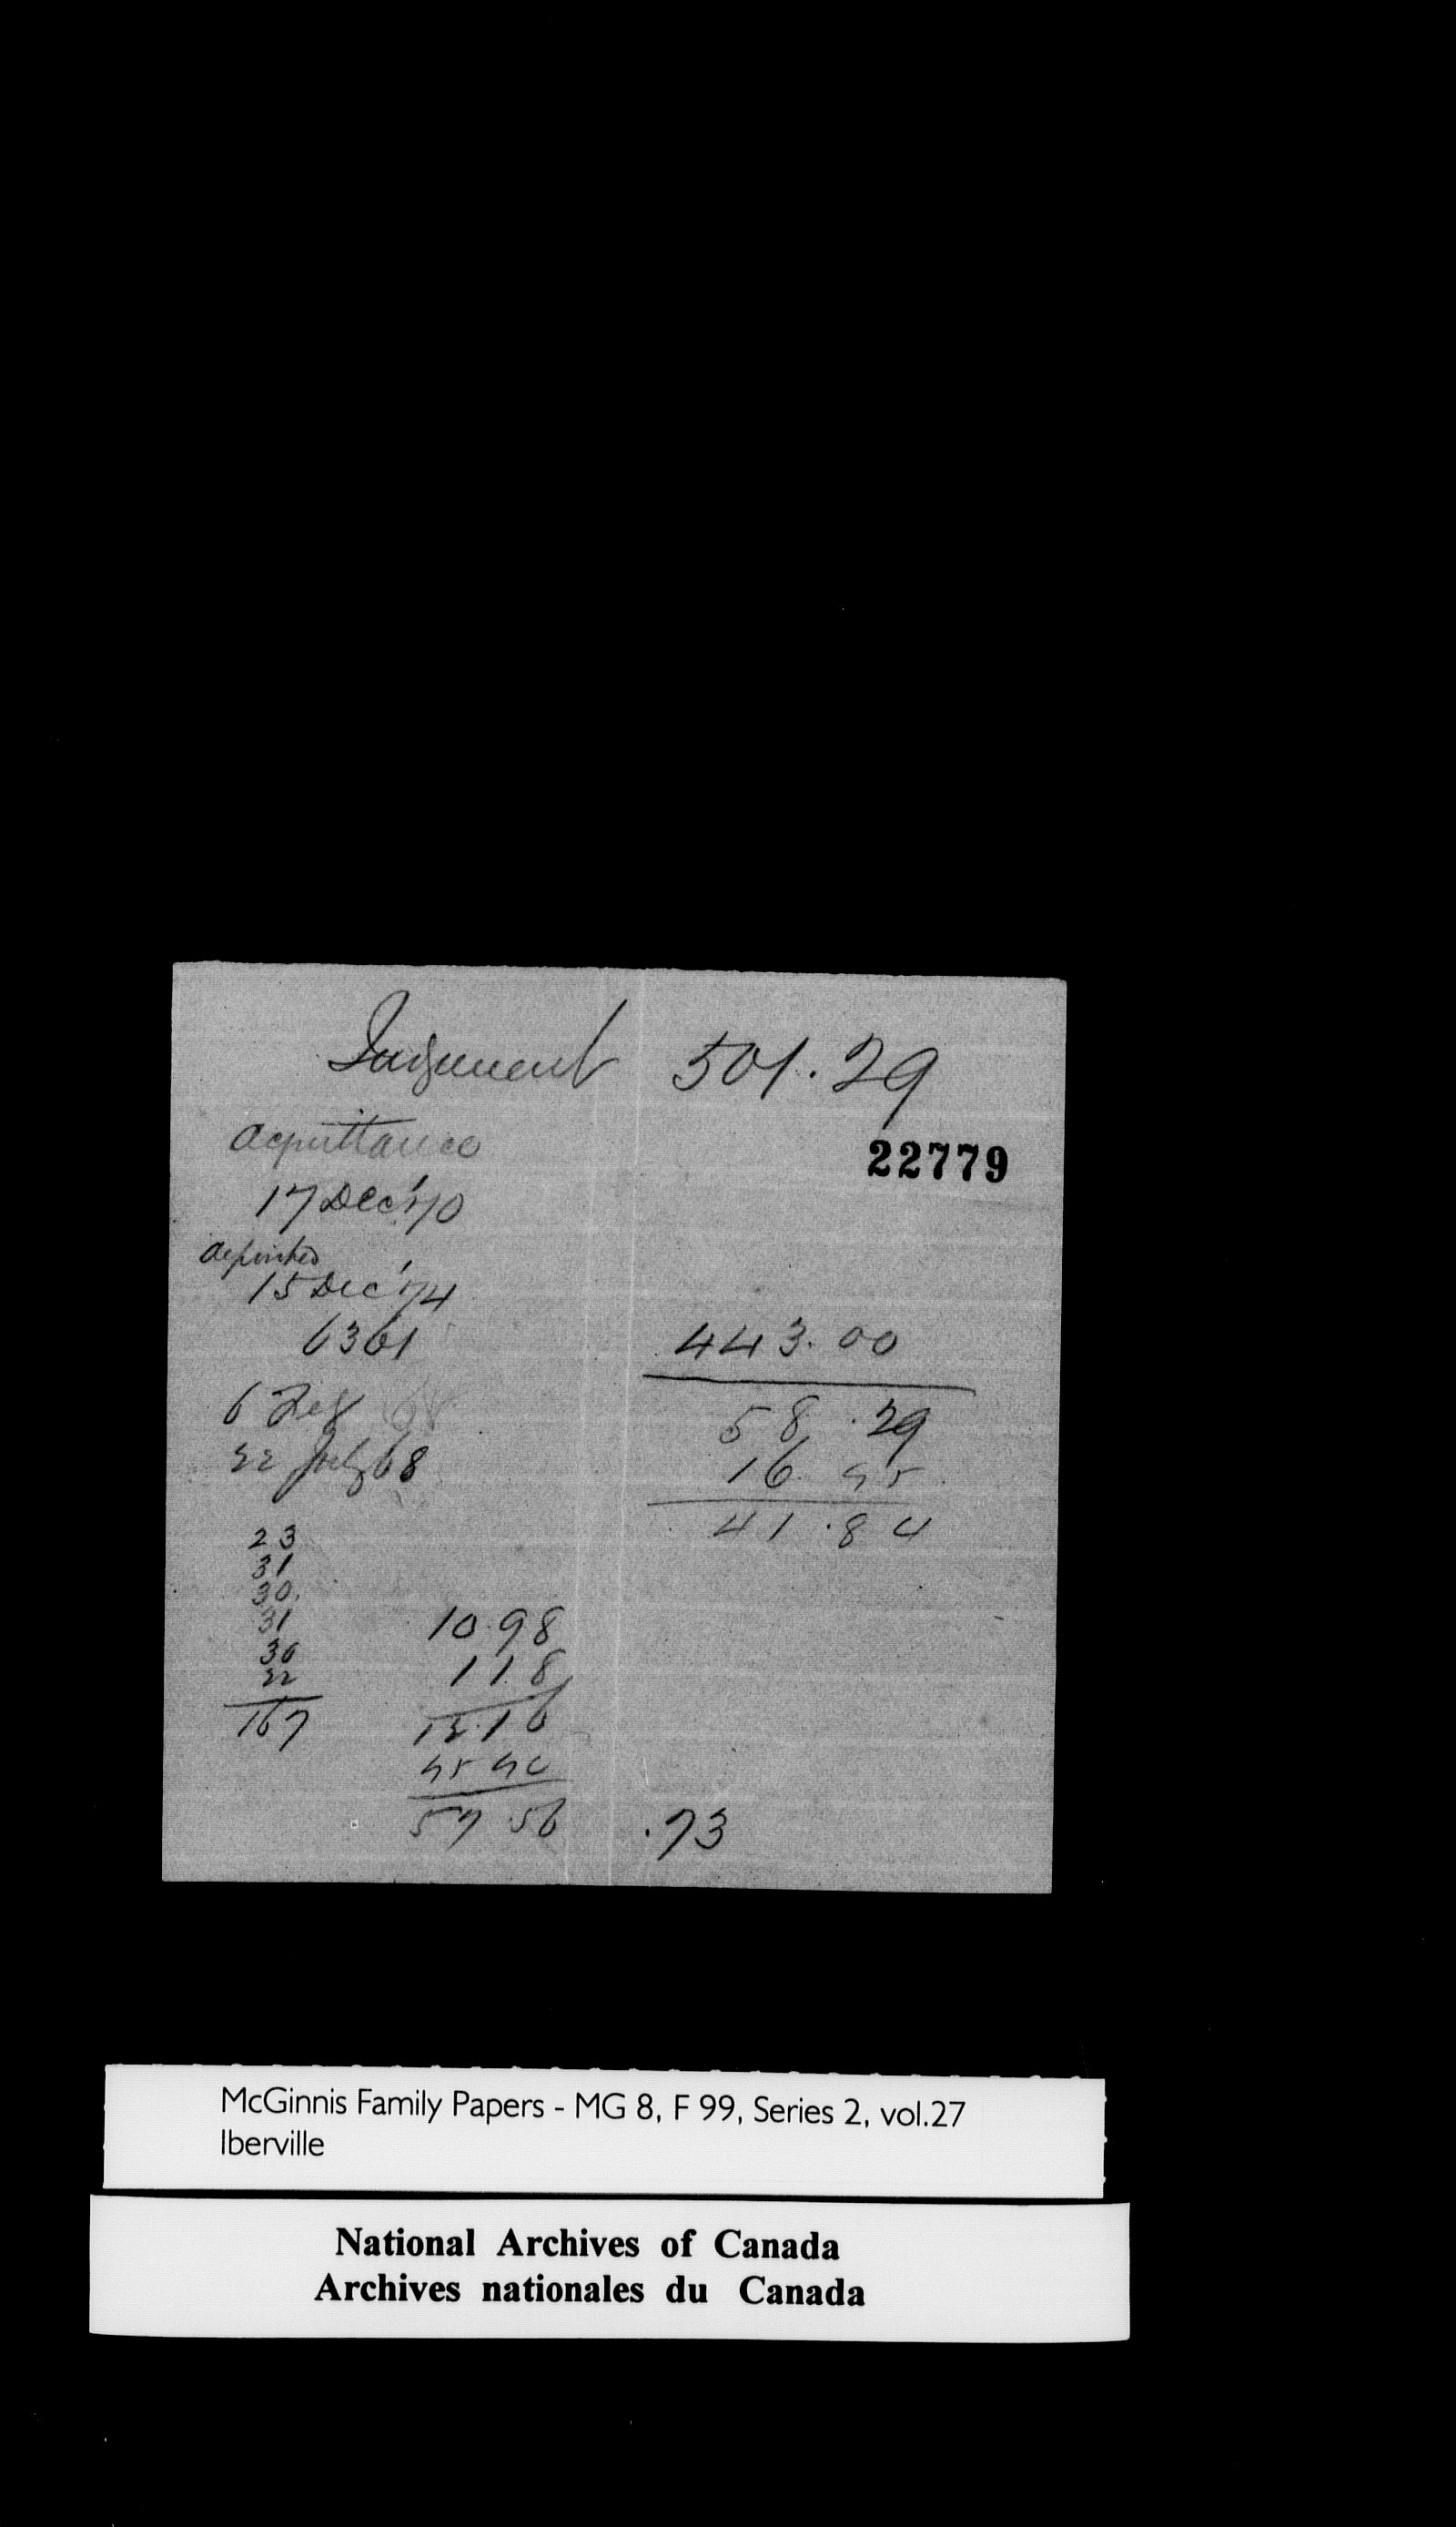 Judgement 501.29
22779
Acquittance
17 Dec '70
deposited
15 Dec '74
6361
443.00
6 Feb 68
58.29
22 July 68
16 45
41.84
23
31
30
31
30
22
167
10.98
1 18
12.16
45 40
57.56
.73
McGinnis Family Papers - MG 8, F 99, Series 2, vol.27
Iberville
National Archives of Canada
Archives nationales du Canada